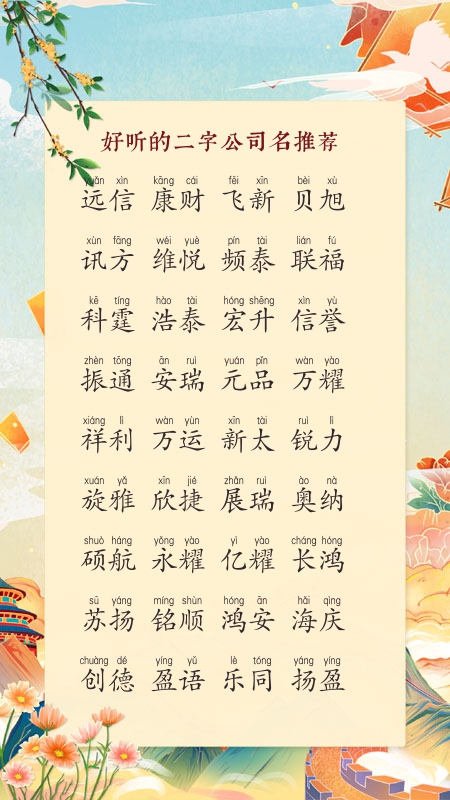 好听的二字公司名推荐
yuǎn xìn kāng cái fēi xīn bèi xù
远信 康财 飞新 贝旭
xùn fāng wéi yuè pín tài lián fú
讯方 维悦 频泰 联福
kē tíng hào tài hóng shēng xìn yù
科霆 浩泰 宏升 信誉
zhèn tōng ān ruì yuán pǐn wàn yào
振通 安瑞 元品 万耀
xiáng lì wàn yùn xīn tài ruì lì
祥利 万运 新太 锐力
xuán yǎ xīn jié zhǎn ruì ào nà
旋雅 欣捷 展瑞 奥纳
shuò háng yǒng yào yì yào cháng hóng
硕航 永耀 亿耀 长鸿
sū yáng míng shùn hóng ān hǎi qìng
苏扬 铭顺 鸿安 海庆
chuàng dé yíng yǔ lè tóng yáng yíng
创德 盈语 乐同 扬盈